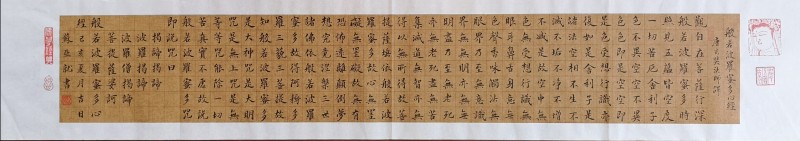 般若波羅蜜多心經
唐三藏法師譯
觀自在菩薩行深
般若波羅蜜多時
照見五蘊皆空度
一切苦厄舍利子
色不異空空不異
色色即是空空即
是色受想行識亦
復如是舍利子是
諸法空相不生不
滅不垢不淨不增
不減是故空中無
色無受想行識無
眼耳鼻舌身意無
色聲香味觸法無
眼界乃至無意識
界無無明亦無無
明盡乃至無老死
亦無老死盡無苦
集滅道無智亦無
得以無所得故菩
提薩埵依般若波
羅蜜多故心無罣
礙無罣礙故無有
恐怖遠離顛倒夢
想究竟涅槃三世
諸佛依般若波羅
蜜多故得阿耨多
羅三藐三菩提故
知般若波羅蜜多
是大神咒是大明
咒是無上咒是無
等等咒能除一切
苦真實不虛故說
般若波羅蜜多咒
即說咒曰
揭諦揭諦
波羅揭諦
波羅僧揭諦
菩提薩婆訶
般若波羅蜜多心
經己亥夏月吉日
書